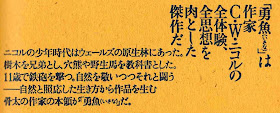 『勇魚(いさな)』は
作家
C・W・ニコルの
全体験、
全思想を
肉とした
傑作だ
ニコルの少年時代はウェールズの原生林にあった。
樹木を兄弟とし、穴熊や野生馬を教科書とした。
11歳で鉄砲を撃つ。自然を敬いつつそれと闘う
——自然と照応した生き方から作品を生む
骨太の作家の本領が『勇魚(いさな)』だ。